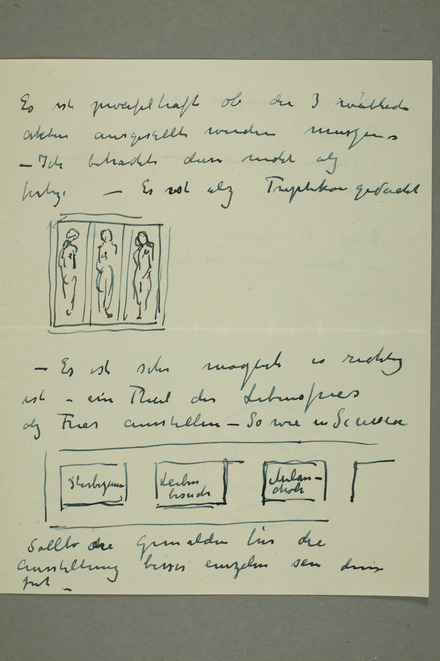 Es ist zweifelhaft ob die 3 weiblich
akten ausgestellt werden mussen
– Ich betrachte diese nicht als
fertig. – Es ist als Triptikon gedacht
– Es ist sehr möglich es richtig
ist – ein Theil des Lebensfries
als Fries ausstellen – So wie in
Leichen
Melan–
cholie
Sollte die Gemälden für die
Ausstellung besser einzeln sein
gut –